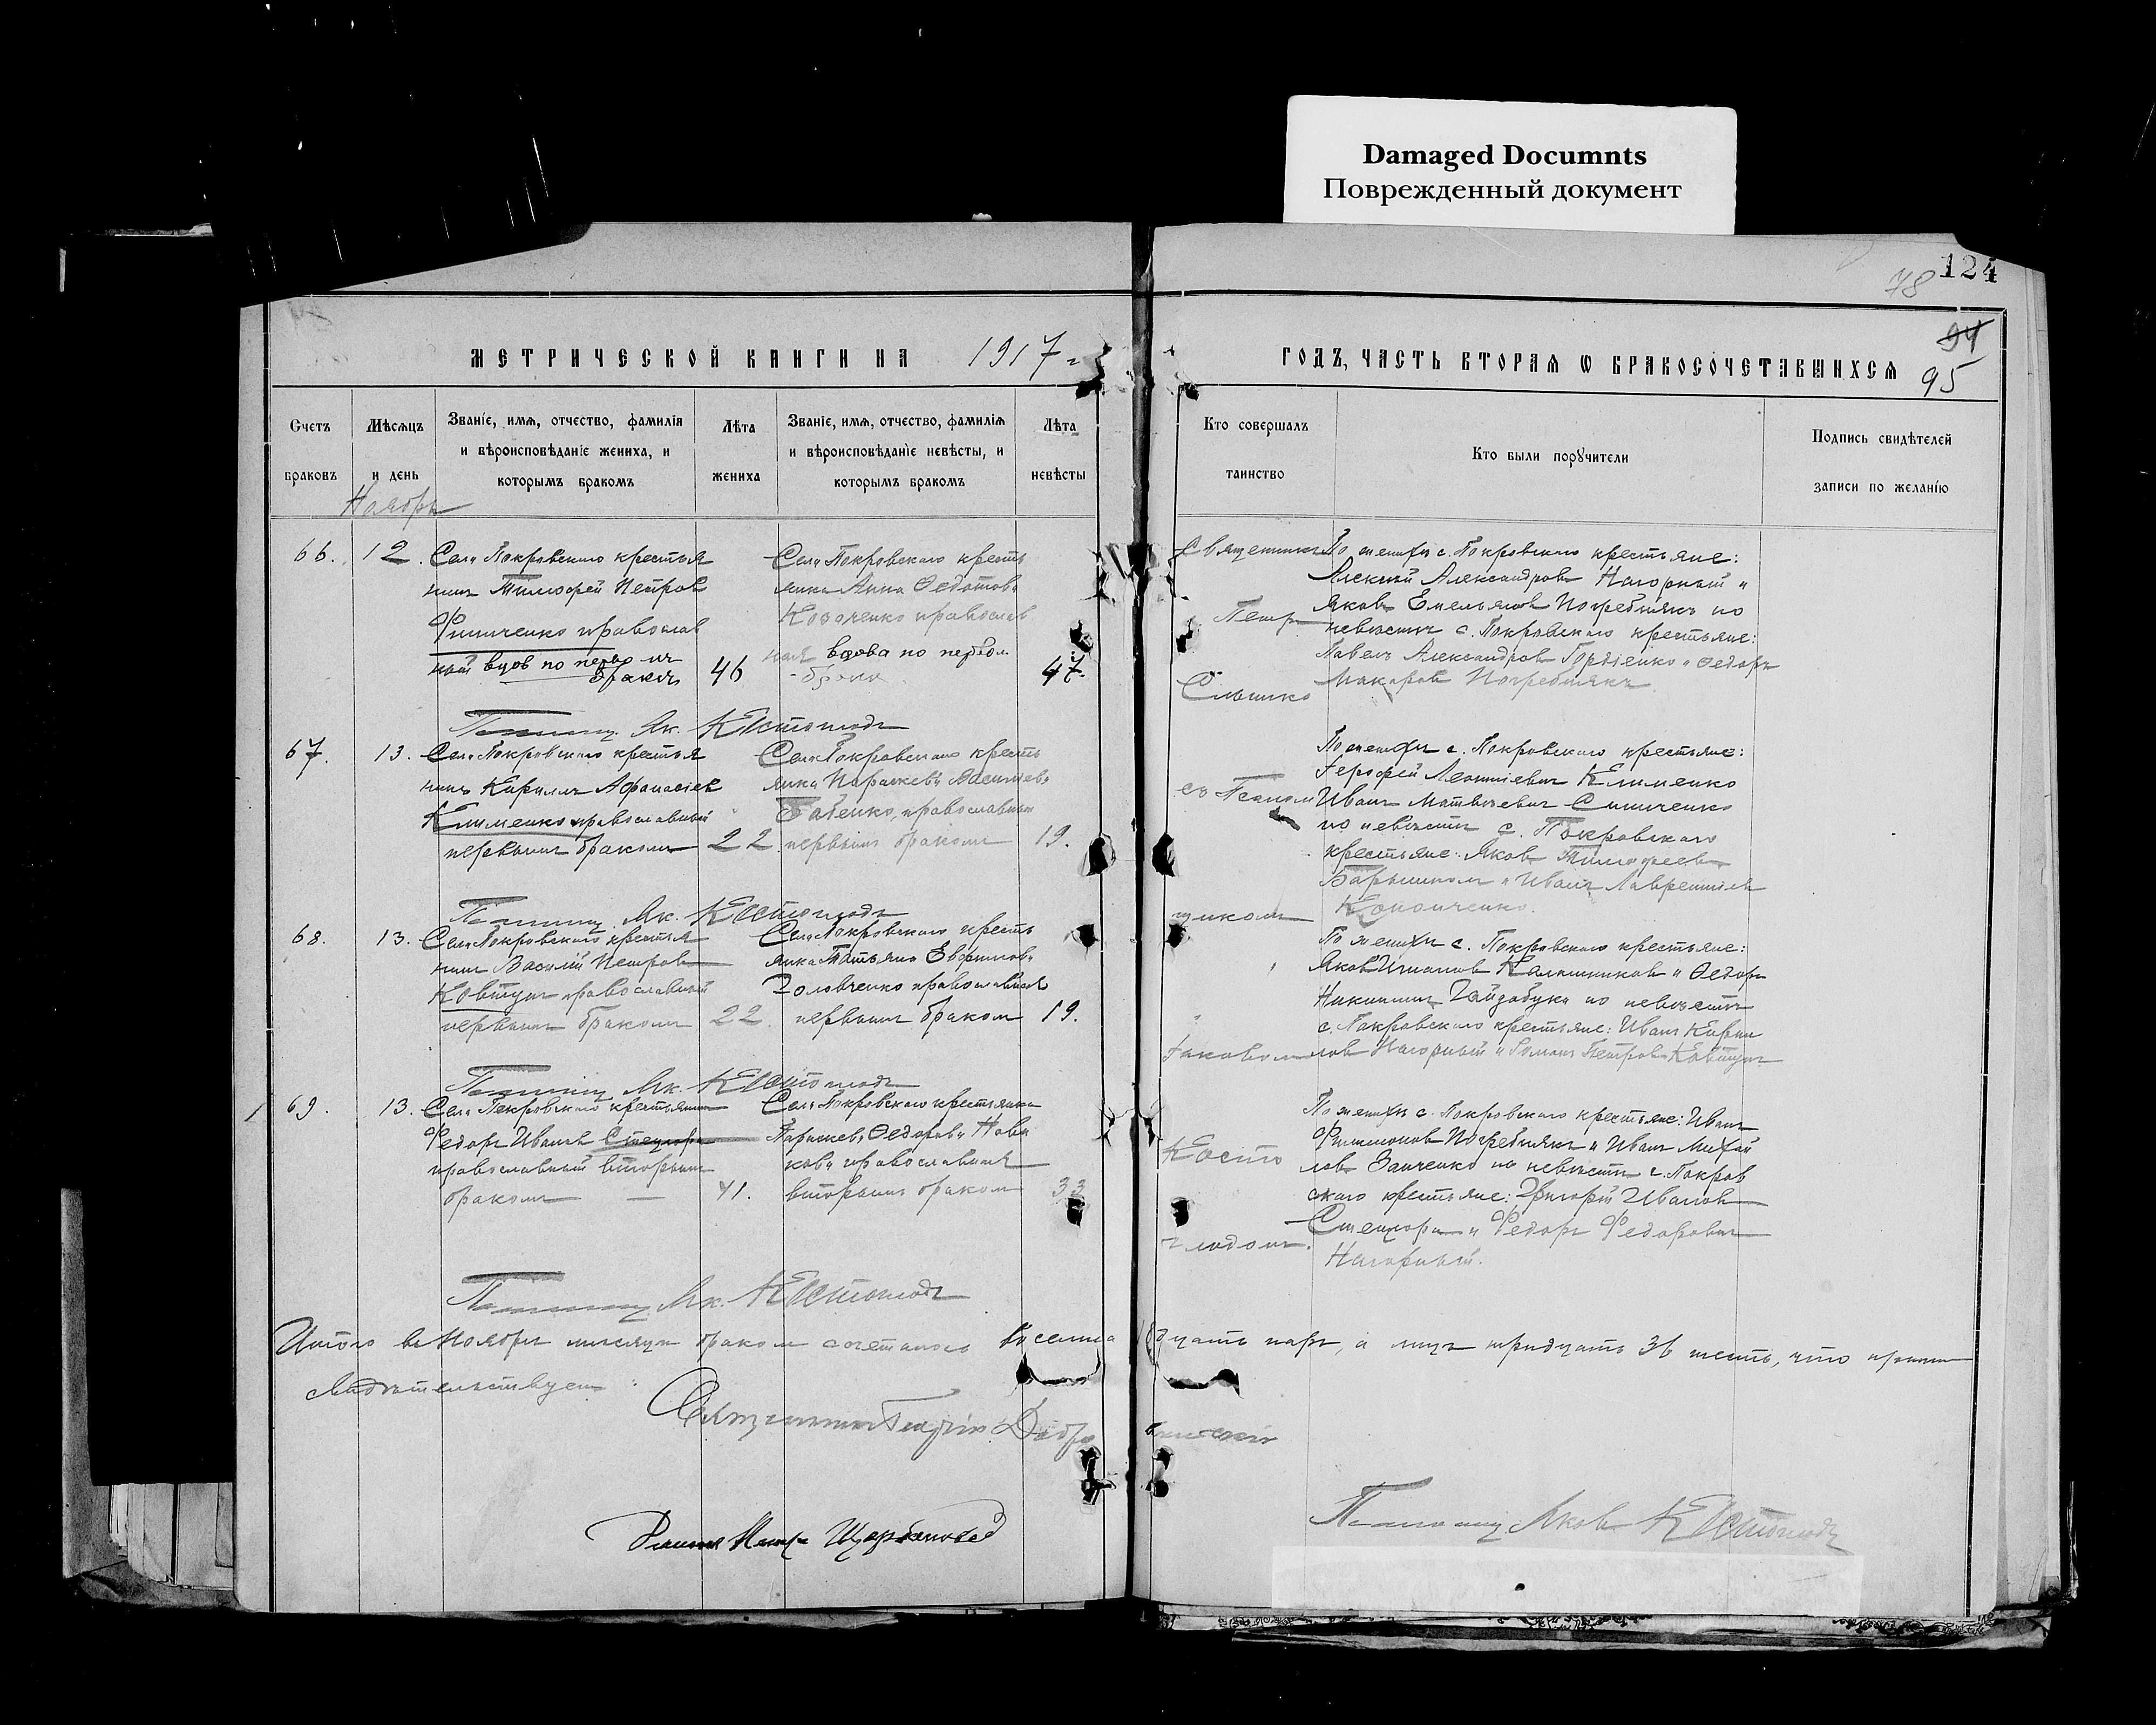 Damaged Documnts
Поврежденный документ
124
78
94
95
МЕТРИЧЕСКОЙ КНИГИ НА 1917
ГОДЪ, ЧАСТЬ ВТОРАЯ Ѡ БРАКОСОЧЕТАВШИХСЯ
Счетъ браковъ
Мѣсяцъ и день
Званіе, имя, отчество, фамилія и вѣроисповѣданіе жениха, и которымъ бракомъ
Лѣта жениха
Званіе, имя, отчество, фамилія и вѣроисповѣданіе невѣсты, и которымъ бракомъ
Лѣта невѣсты
Кто совершалъ таинство
Кто были порꙋчители
Подпись свидѣтелей записи по желанію
Ноябрь
66. 12.
Села Покровскаго крестья
нинъ Тимофей Петров
православ
ный вдов по первомъ
бракѣ
46
Села Покровскаго кресть
янка Анна Ѳедотова
Козаченко православ
ная вдова по первом
браке
47.
Священникъ
Петр
Слышко
По женихѣ с. Покровскаго крестьяне:
Алексѣй Александров Нагорный и
Яков Емельянов Погребнякъ по
невѣстѣ с. Покровскаго крестьяне:
Павелъ Александров Гордіенко и Ѳедоръ
Макаров Погребнякъ.
Як. Костоглодъ
67. 13.
Села Покровскаго крестья
нинъ Кириллъ Афанасіев
Клименко православный
первымъ бракомъ
22
Села Покровскаго кресть
янка Параскева
Бабенко, православная
первымъ бракомъ
19.
съ Псалом
щиком
По женихѣ с. Покровскаго крестьяне:
Клименко
Иванъ Матвѣевич Синиченко
по невѣстѣ с. Покровскаго
крестьяне: Яков Тимофеев
и Иванъ Лаврентіев
Кононченко.
Як. Костоглодъ
68. 13.
Села Покровскаго крестья
нинъ Василій Петров
Ковтун православный
первымъ бракомъ
22
Села Покровскаго кресть
янка Татьяна Евфимова
Головченко православная
первымъ браком
19.
Іаковом
По женихѣ с. Покровскаго крестьяне:
Яков Игнатов Калашников и Ѳедоръ
Никитинъ Гайдабука по невѣстѣ
с. Покровскаго крестьяне: Иванъ Кирил
лов Нагорный и Романъ Петров Ковтун
Як. Костоглодъ
69. 13.
Села Покровскаго крестьянин
Федоръ Иванов Стецюра
православный вторымъ
бракомъ
41.
Села Покровскаго крестьянка
Параскева Ѳедорова Нова
кова православная
вторымъ браком
33
Косто
глодом.
По женихѣ с. Покровскаго крестьяне: Иванъ
Филимонов Погребнякъ и Иванъ Михай
лов Заиченко по невѣстѣ с. Покров
скаго крестьяне: Григорій Иванов
Стецюра и Федоръ Федорович
Нагорный.
Як. Костоглодъ
Итого въ Ноябрѣ месяцѣ браком сочеталось восемнадцать пар, а лицъ тридцать 36 шесть, что
свидѣтельствуем
Священникъ Георгій
Щербановъ
Яков Костоглодъ